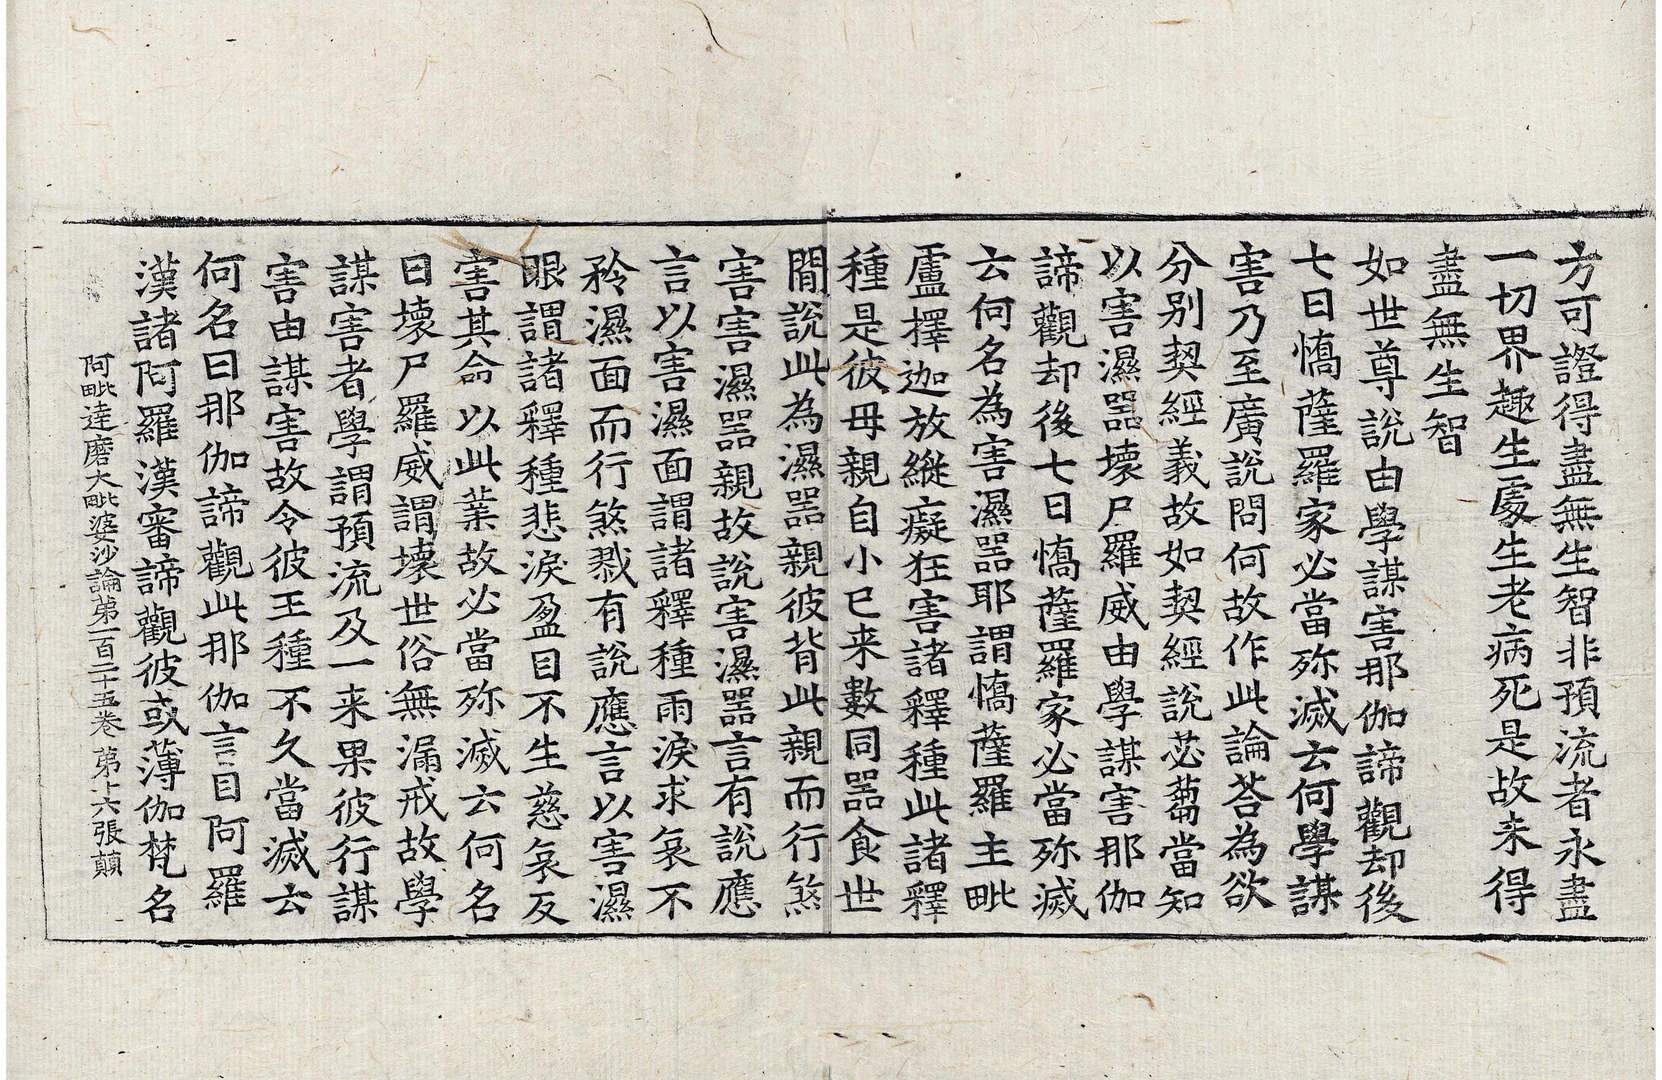 方可證得盡無生智非預流者永盡
一切界趣生處生老病死是故来得
盡無生智
如世尊說由學謀害那伽諦觀却後
七日憍薩羅家必當殄滅云何學謀
害乃至廣說問何故作此論荅為欲
分别契經義故如契經說苾蒭當知
以害濕器壞尸羅威由學謀害那伽
諦觀却後七日憍薩羅家必當殄滅
云何名為害濕器耶謂憍薩羅主毗
盧擇迦放縱癡狂害諸釋種此諸釋
種是彼母親自小已来數同器食世
間說此為濕器親彼背此親而行煞
害害濕器親故說害濕器言有說應
言以害濕面謂諸釋種雨淚求哀不
矜濕面而行煞戮有說應言以害濕
眼謂諸釋種悲淚盈目不生慈哀反
害其命以此業故必當殄滅云何名
曰壞尸羅威謂壞世俗無漏戒故學
謀害者學謂預流及一来果彼行謀
害由謀害故令彼王種不久當滅云
何名曰那伽諦觀此那伽言目阿羅
漢諸阿羅漢審諦觀彼或薄伽梵名
阿毗達磨大毗婆沙論第一百二十五卷 第十六張 顛